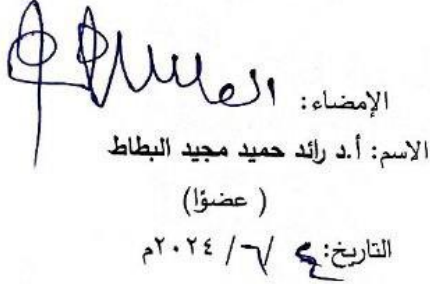 الإمضاء:
الاسم: أ.د رائد حميد مجيد البطاط
( عضوًا)
التاريخ: / ٦ / ٢٠٢٤م